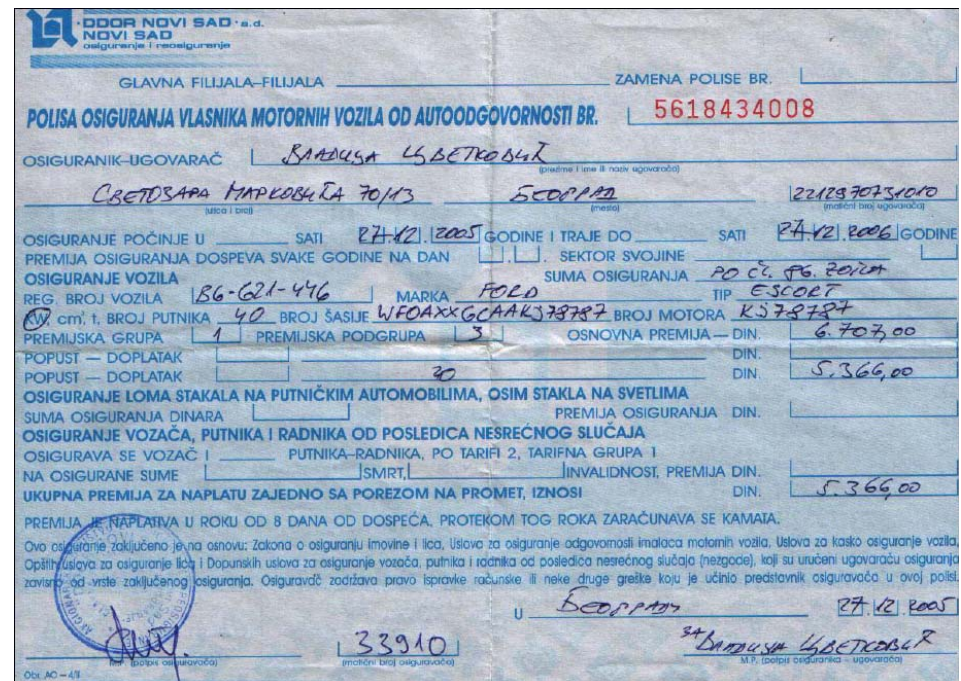 DDOR NOVI SAD a.d.
NOVI SAD
osiguranje i reosiguranje
GLAVNA FILIJALA–FILIJALA ZAMENA POLISE BR.
POLISA OSIGURANJA VLASNIKA MOTORNIH VOZILA OD AUTOODGOVORNOSTI BR. 5618434008
OSIGURANIK–UGOVARAČ Владица Цветковић
(prezime i ime ili naziv ugovarača)
Светозара Марковића 70/13 Београд 2212970731010
(ulica i broj) (mesto) (matični broj ugovarača)
OSIGURANJE POČINJE U SATI 27.12.2005 GODINE I TRAJE DO SATI 27.12.2006 GODINE
PREMIJA OSIGURANJA DOSPEVA SVAKE GODINE NA DAN . . SEKTOR SVOJINE
OSIGURANJE VOZILA SUMA OSIGURANJA PO ČL. 86.
REG. BROJ VOZILA BG-621-446 MARKA FORD TIP ESCORT
KW, cm³, t, BROJ PUTNIKA 40 BROJ ŠASIJE WFOAXXGCAAKJ78787 BROJ MOTORA KJ78787
PREMIJSKA GRUPA 1 PREMIJSKA PODGRUPA 3 OSNOVNA PREMIJA — DIN. 6.707,00
POPUST — DOPLATAK DIN.
POPUST — DOPLATAK 20 DIN. 5.366,00
OSIGURANJE LOMA STAKALA NA PUTNIČKIM AUTOMOBILIMA, OSIM STAKLA NA SVETLIMA
SUMA OSIGURANJA DINARA PREMIJA OSIGURANJA DIN.
OSIGURANJE VOZAČA, PUTNIKA I RADNIKA OD POSLEDICA NESREĆNOG SLUČAJA
OSIGURAVA SE VOZAČ I PUTNIKA–RADNIKA, PO TARIFI 2, TARIFNA GRUPA 1
NA OSIGURANE SUME SMRT, INVALIDNOST, PREMIJA DIN.
UKUPNA PREMIJA ZA NAPLATU ZAJEDNO SA POREZOM NA PROMET, IZNOSI DIN. 5.366,00
PREMIJA JE NAPLATIVA U ROKU OD 8 DANA OD DOSPEĆA, PROTEKOM TOG ROKA ZARAČUNAVA SE KAMATA.
Ovo osiguranje zaključeno je na osnovu: Zakona o osiguranju imovine i lica, Uslova za osiguranje odgovornosti imalaca motornih vozila, Uslova za kasko osiguranje vozila,
Opštih uslova za osiguranje lica i Dopunskih uslova za osiguranje vozača, putnika i radnika od posledica nesrećnog slučaja (nezgode), koji su uručeni ugovaraču osiguranja
zavisno od vrste zaključenog osiguranja. Osiguravač zadržava pravo ispravke računske ili neke druge greške koju je učinio predstavnik osiguravača u ovoj polisi.
U Београду 27.12.2005
33910 за Владица Цветковић
M.P. (potpis osiguravača) (matični broj osiguravača) M.P. (potpis osiguranika – ugovarača)
Obr. AO – 4/II